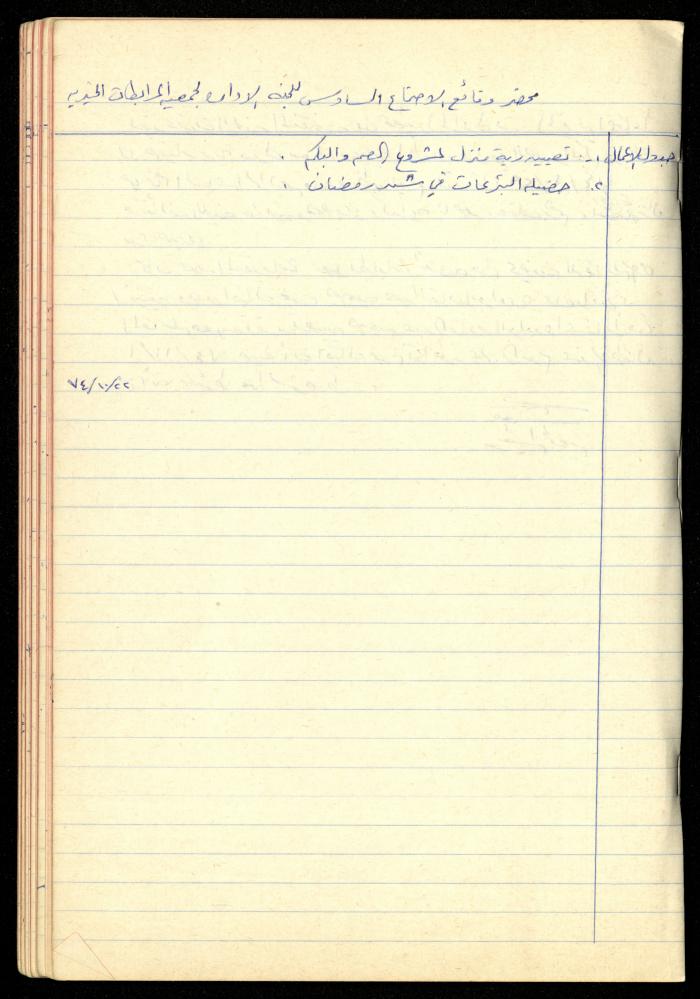 محضر وقائع الاجتماع السادس للجنة الادارية لجمعية المرابطات الخيرية
جدول الاعمال ١. تعيين ربة منزل لمشروع الصم والبكم .
٢. حصيلة التبرعات في شهر رمضان .
٧٤/١٠/٢٢